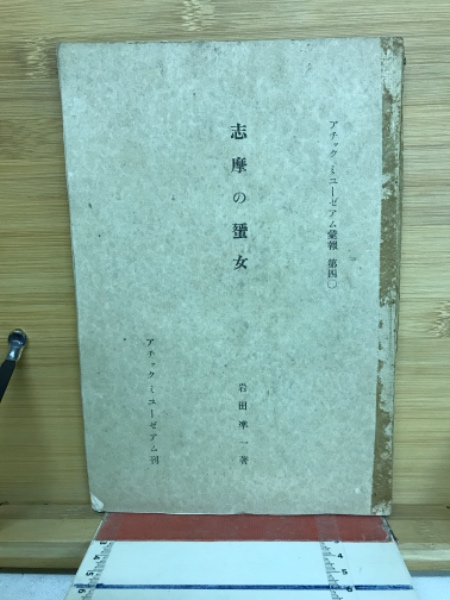 アチックミユーゼアム彙報 第四〇
志摩の蜑女
岩田準一著
アチックミユーゼアム刊